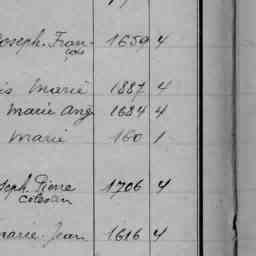 Joseph-Fran- 1659 4
çois
is Marie 1887 4
Marie Ang 1684 4
Marie 160 1
seph Pierre 1706 4
Marie-Jean 1616 4